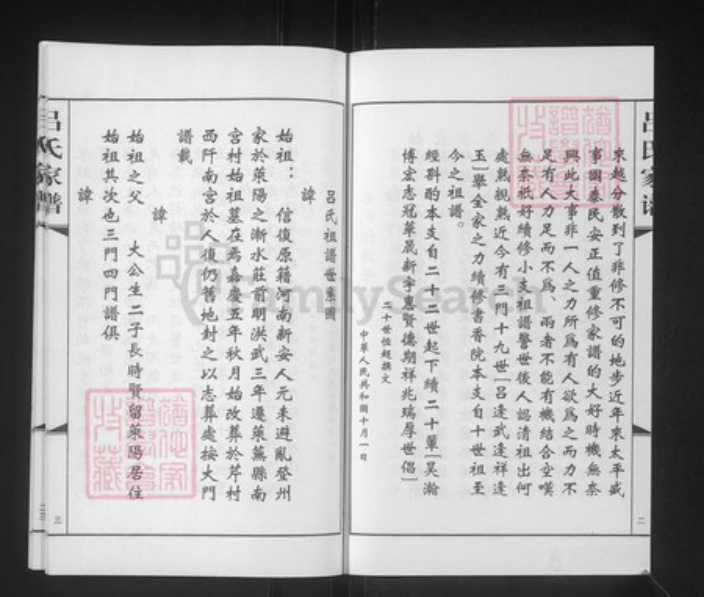 吕氏家谱
二
來越分散到了非修不可的地步近年來太平盛
事國泰民安正值重修家譜的大好時機無奈
興此大事非一人之力所爲有人欲爲之而力不
足有人力足而不爲、兩者不能有機結合空嘆
無奈祇好續修小支祖譜警世後人認清祖出何
處熟視熟近今有三門十九世[吕逢武逢祥逢
玉]舉全家之力續修書香院本支自十世祖至
今之祖譜。
經斟酌本支自二十三世起下續二十輩[昊瀚
博宏志冠華晟新宇惠賢德期祥兆瑞厚世倡]
二十世恒超撰文
中華人民共和國十月一日
吕氏祖譜世系圖
諱
始祖：信復原籍河南新安人元末避亂登州
家於萊陽之漸水莊前明洪武三年遷萊蕪縣南
宫村始祖墓在焉嘉慶五年秋月始改葬於芹村
西阡南宫於人復仍舊地封之以志葬處按大門
譜載
諱
始祖之父 大公生二子長時賢留萊陽居住
始祖其次也三門四門譜俱
諱
吕氏家譜
三
FamilySearch